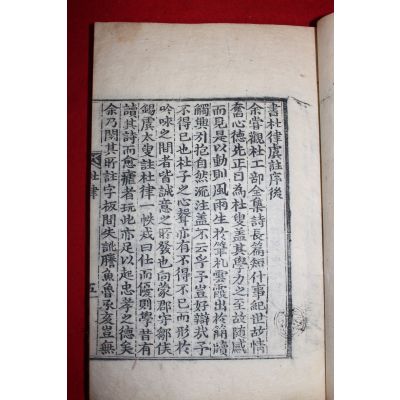 書杜律虞註序後
余嘗觀杜工部全集詩長篇短什事紀世故情
奮心德先正目為杜叟盖其學力之至故随感
而見是以動則風雨生於筆札雲霞出於簡牘
觸興引抱自然流注盖不云乎予豈好辯㢤予
不得已也杜子之心聲亦有不得不已而形於
吟咏之間者皆誠意之所發也向蒙郡守鄒侯
錫虞太叟註杜律一帙或曰仕而優則學昔有
讀其詩而愈瘧者玩此亦足以起忠孝之德矣
余乃閱其所註字板間失訛謄魚魯承亥豈無
杜律
五